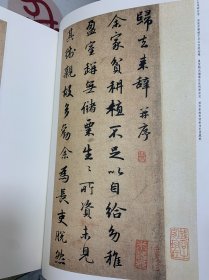 歸去來辭 并序
余家貧耕植不足以自給幼稚
盈室缾無儲粟生生所資未見
其術親故多勸余為長吏脫然